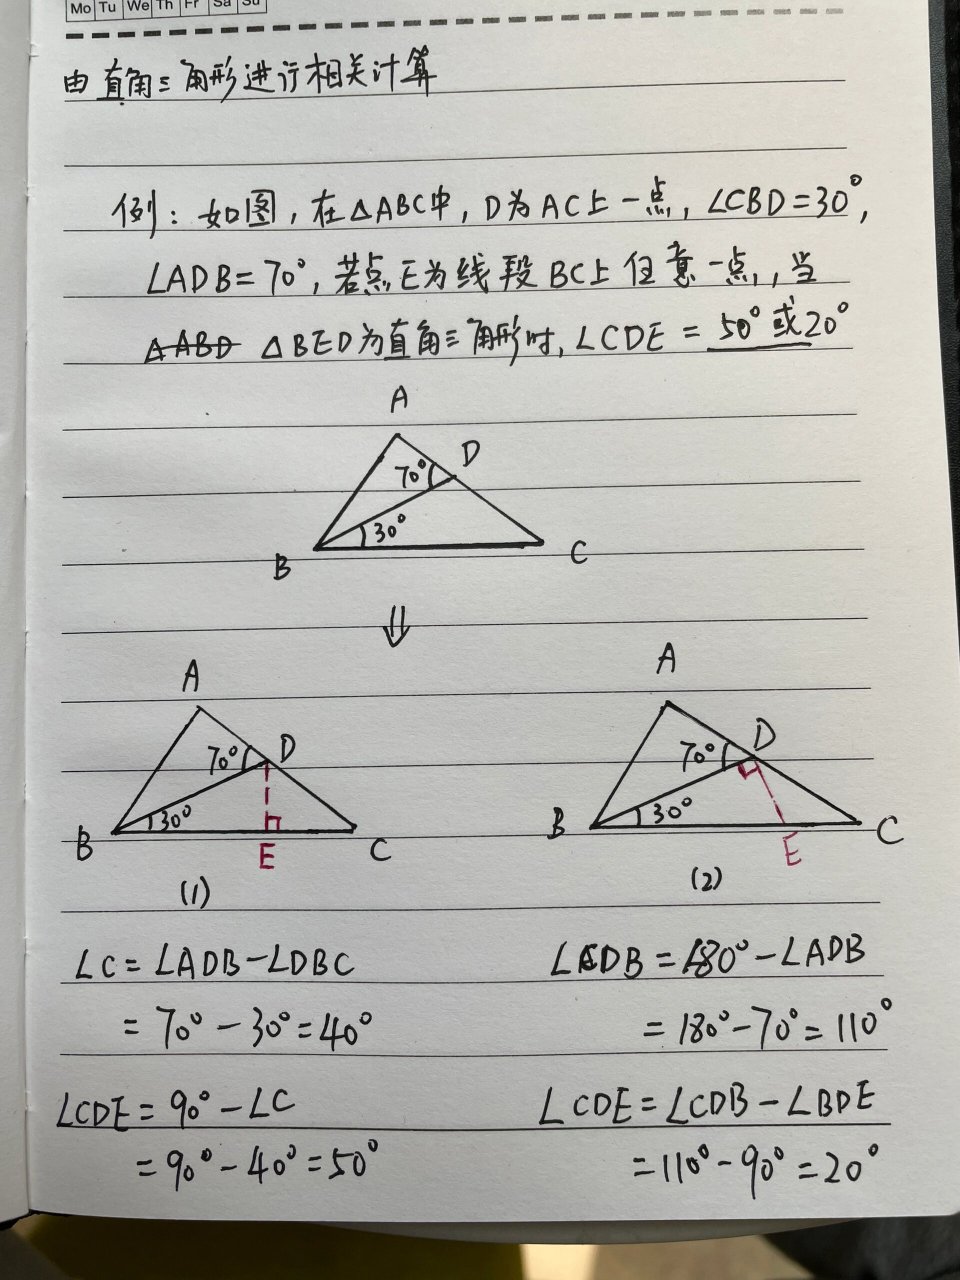 Mo Tu We Th Fr Sa Su
由直角三角形进行相关计算
例：如图，在△ABC中，D为AC上一点，∠CBD=30°，
∠ADB=70°，若点E为线段BC上任意一点，当
△ABD △BED为直角三角形时，∠CDE = 50°或20°
A
D
70°
30°
B
C
⇓
A
D
70°
30°
B
E
C
(1)
A
D
70°
30°
B
E
C
(2)
∠C=∠ADB-∠DBC
=70°-30°=40°
∠CDE=90°-∠C
=90°-40°=50°
∠CDB=180°-∠ADB
=180°-70°=110°
∠CDE=∠CDB-∠BDE
=110°-90°=20°